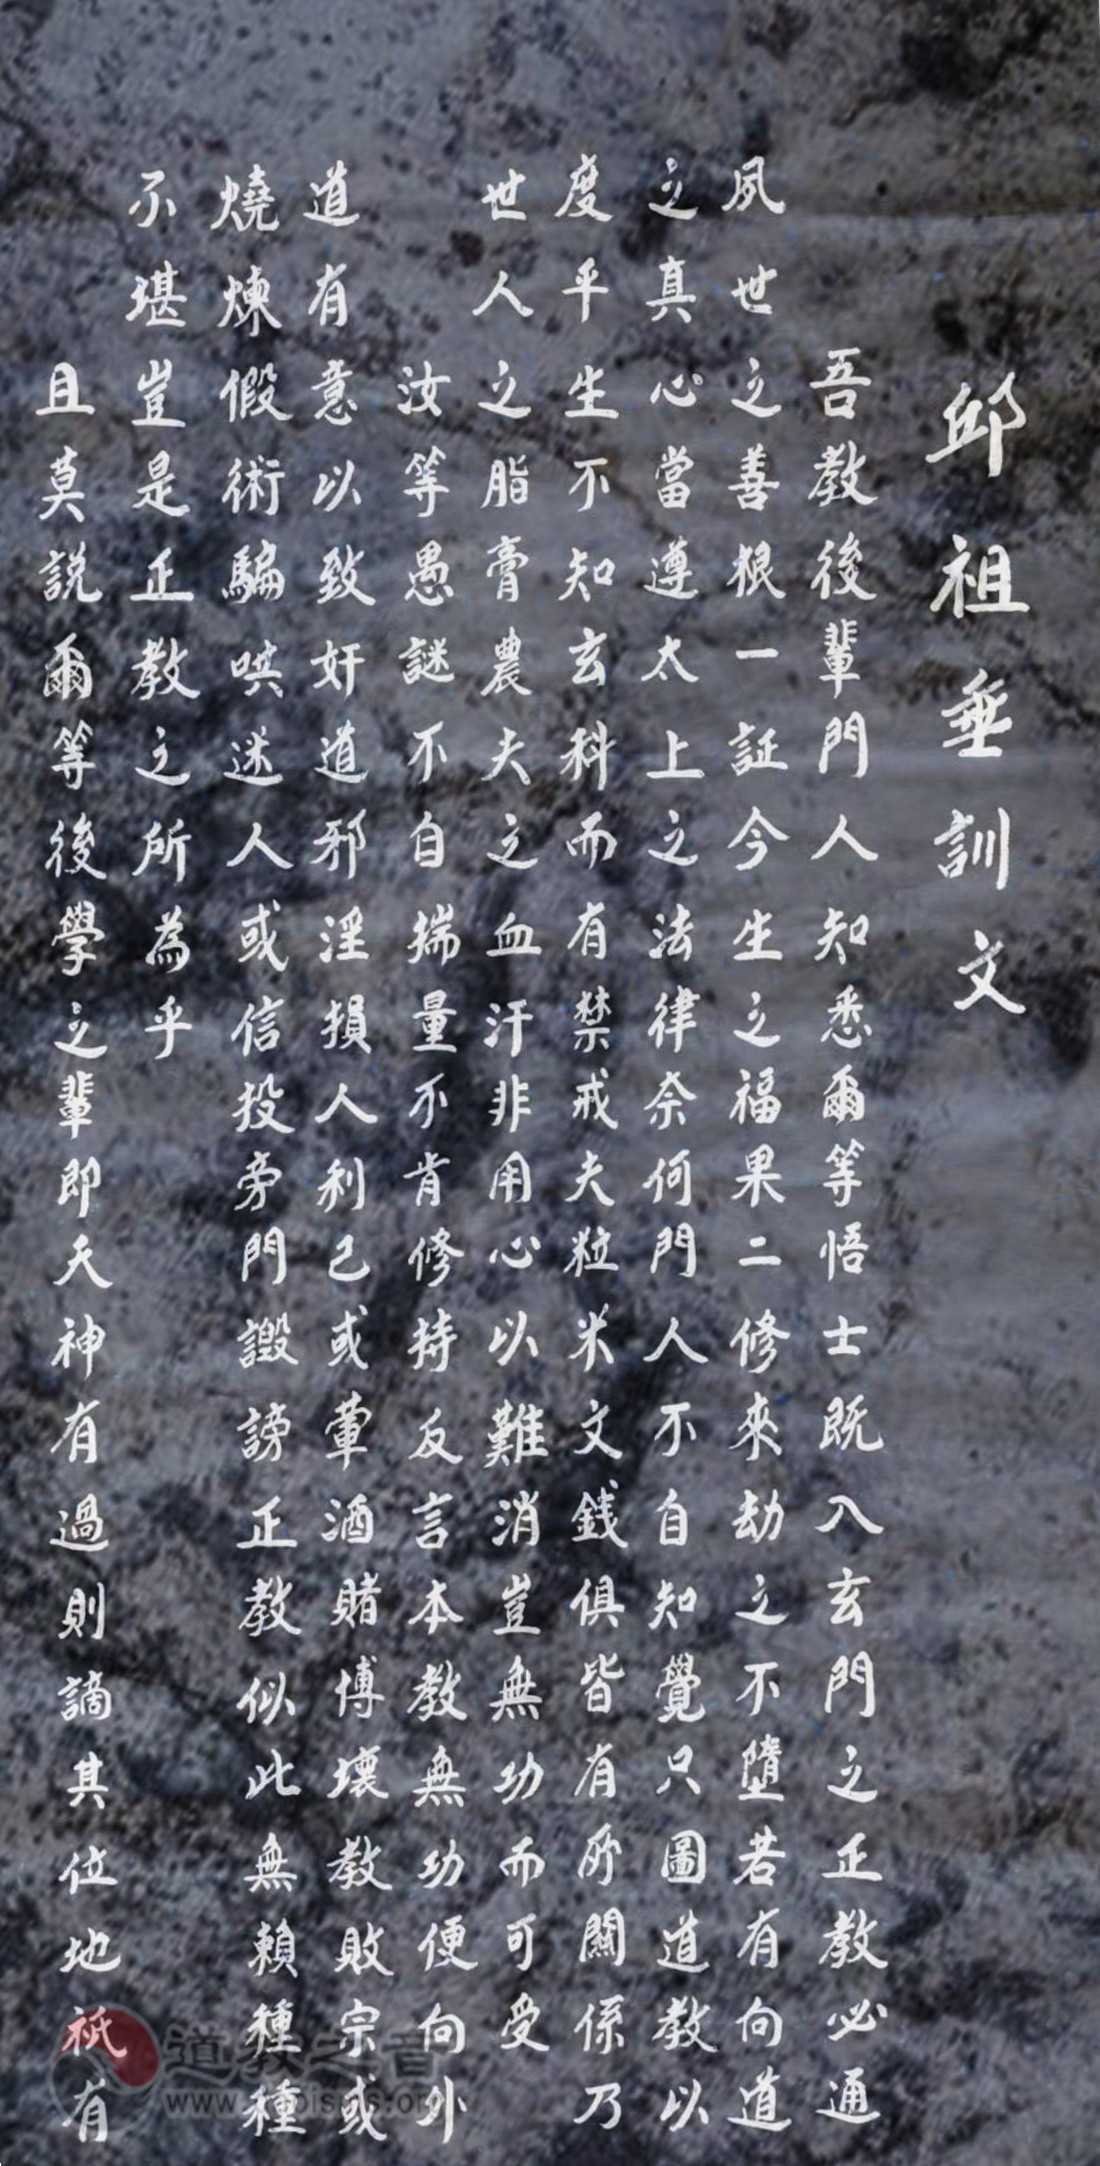 邱祖垂訓文
吾教後輩門人知悉爾等悟士既入玄門之正教必通
夙世之善根一証今生之福果二修來劫之不墮若有向道
之真心當遵太上之法律奈何門人不自知覺只圖道教以
度平生不知玄科而有禁戒夫粒米文銭俱皆有所關係乃
世人之脂膏農夫之血汗非用心以難消豈無功而可受
汝等愚謎不自揣量不肯修持反言本教無功便向外
道有意以致奸道邪淫損人利己或葷酒賭博壞教敗宗或
燒煉假術騙哄迷人或信投旁門譭謗正教似此無賴種種
不堪豈是正教之所為乎
且莫説爾等後學之輩即天神有過則謫其位地祇有
道教之音
www.taoisms.org